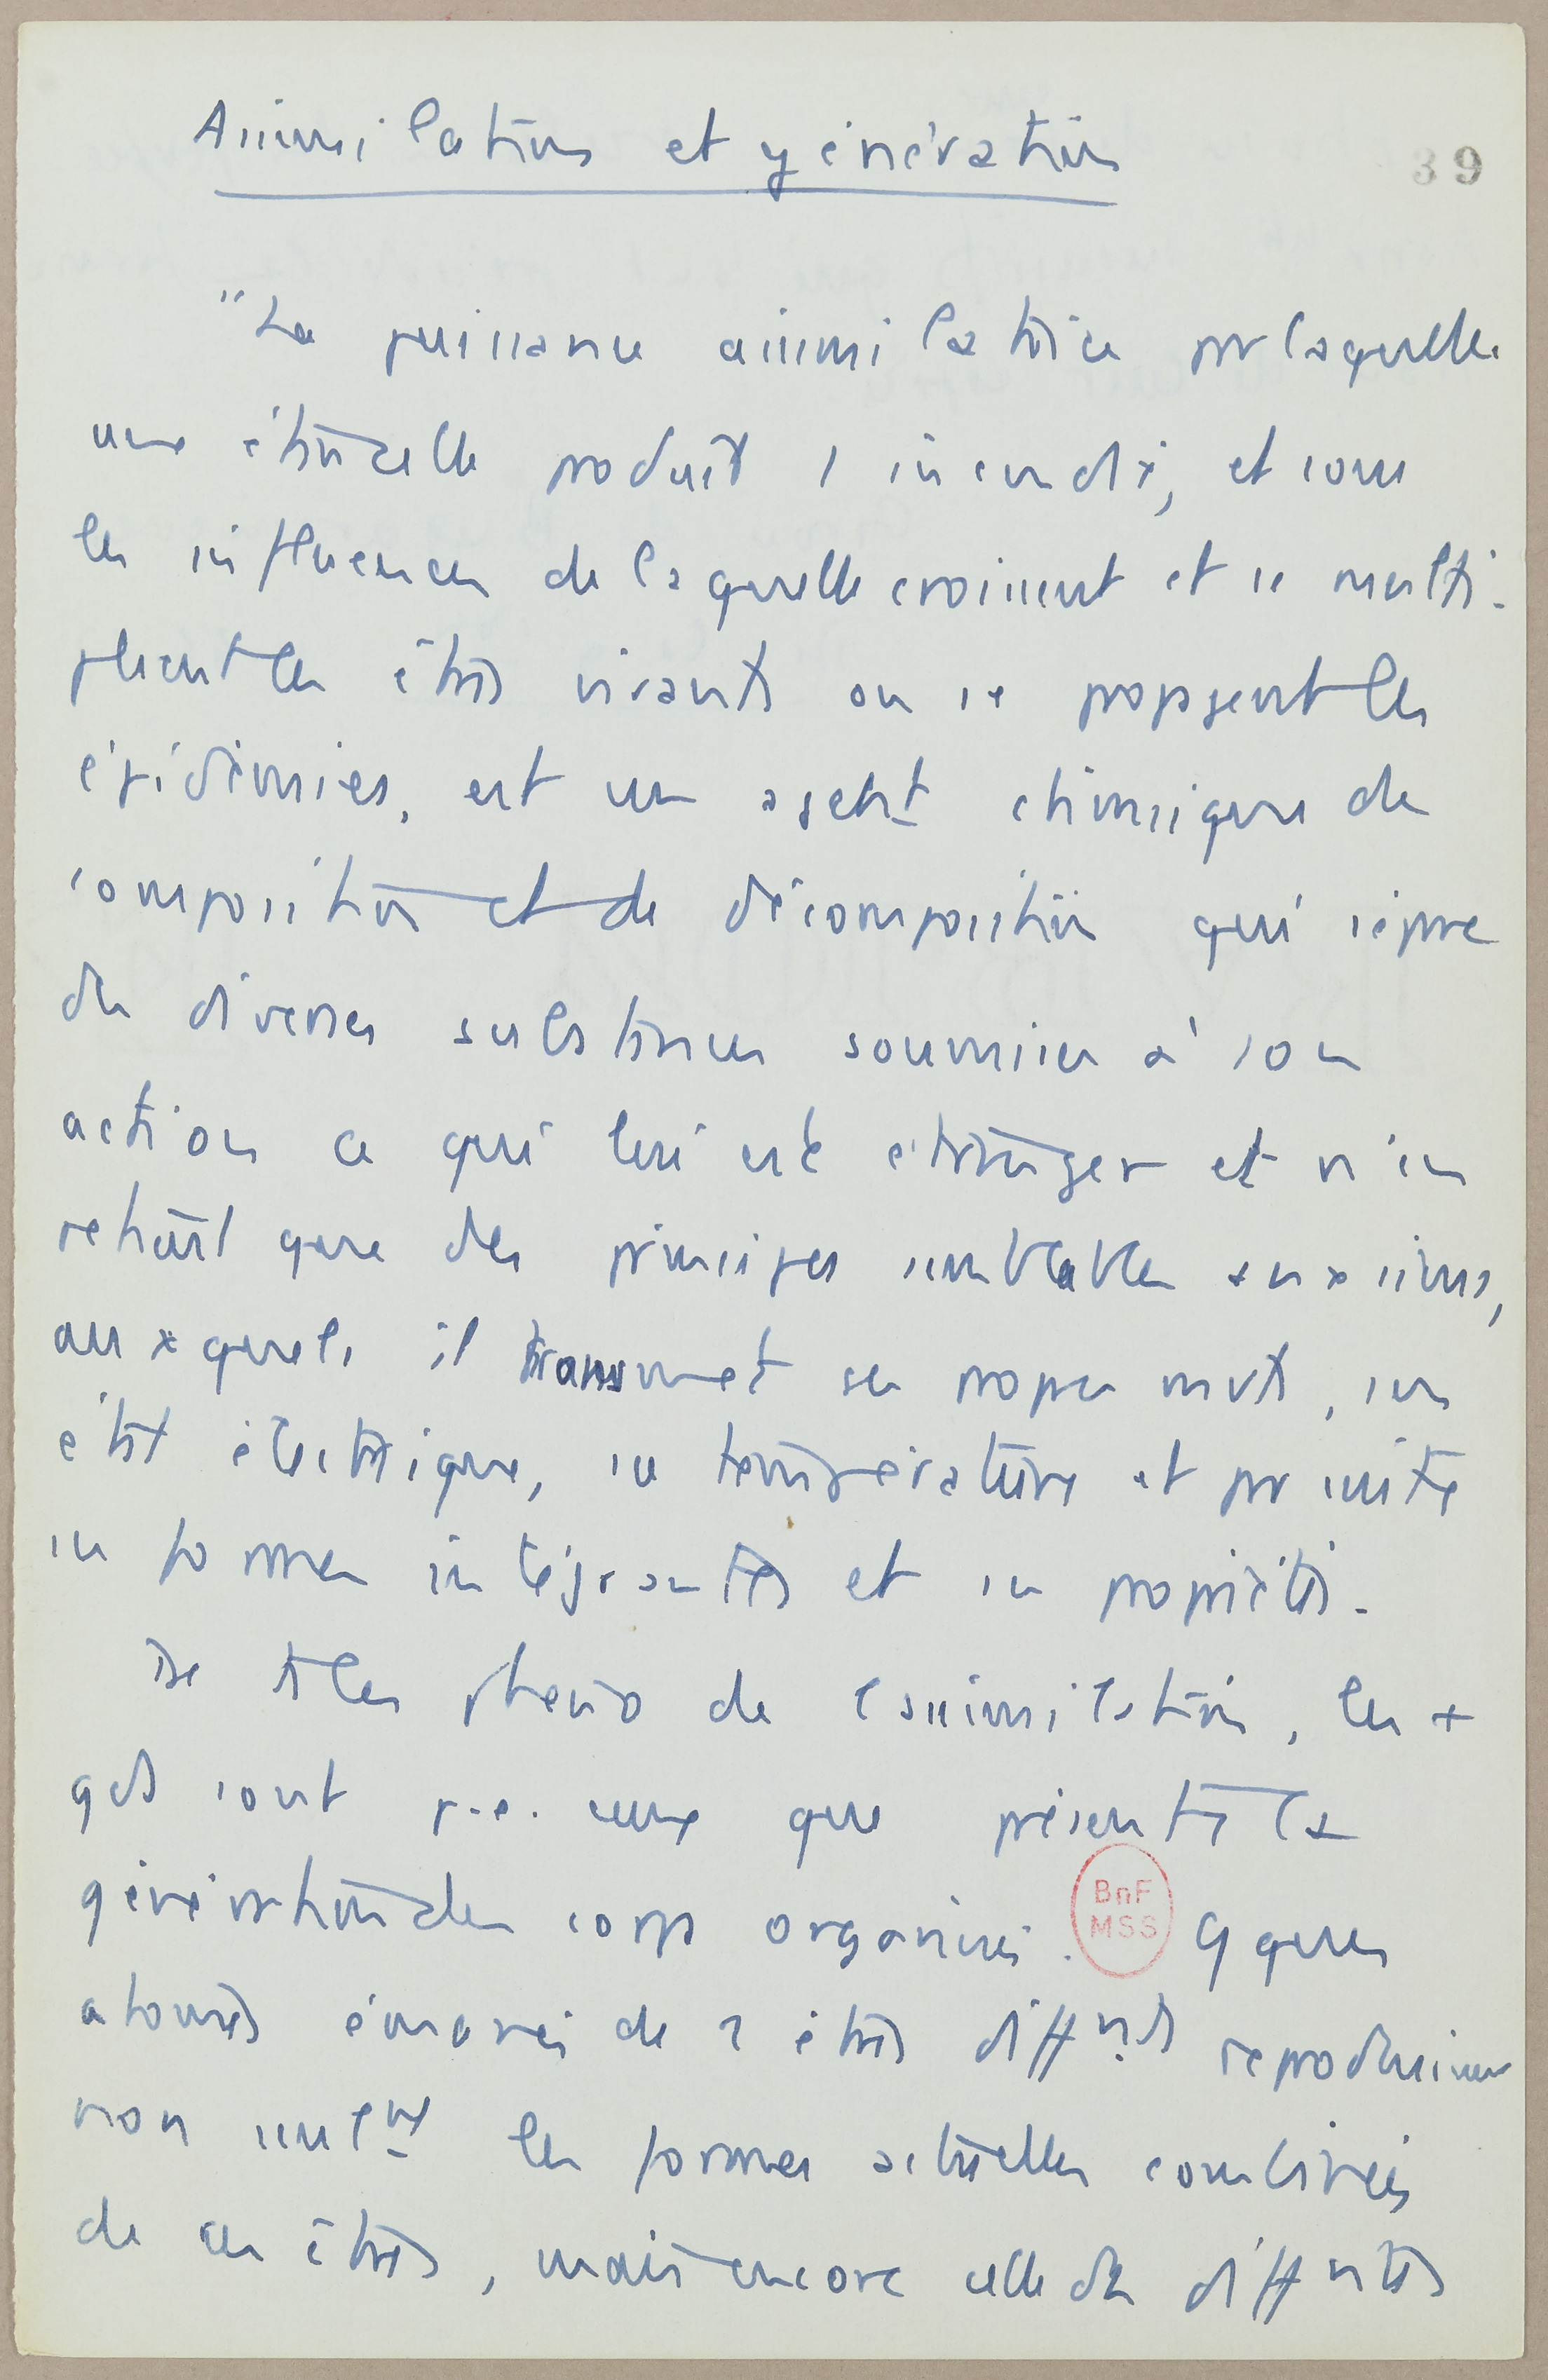 Assimilation et génération
39
"La puissance assimilatrice par laquelle
une étincelle produit l'incendie, et sous
les influences de laquelle croissent et se multi-
plient les êtres vivants ou se propagent les
épidémies, est un agent chimique de
composition et de décomposition qui sépare
des diverses substances soumises à son
action ce qui lui est étranger et n'en
retient que des principes semblables aux siens,
auxquels il transmet ses propres mvts, son
état électrique, sa température et par suite
ses formes intégrantes et ses propriétés.
De ts les phéno de l'assimilation, les +
gds sont p.e. ceux que présente la
génération des corps organisés. Qques
atomes émanés de 2 êtres diffnts reproduisent
non seulemt les formes actuelles combinées
de ces êtres, mais encore celle des diffntes
BnF
MSS